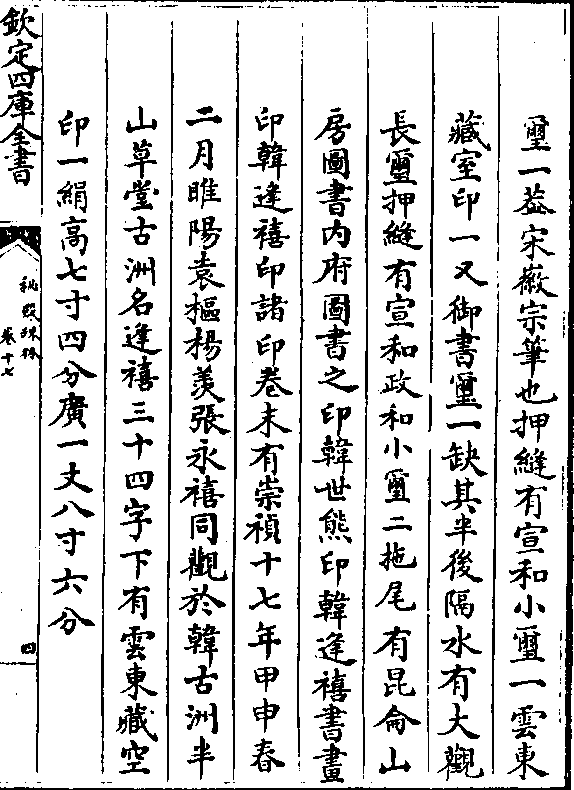 璽一葢宋徽宗筆也押縫有宣和小璽一雲東
藏室印一又御書璽一缺其半後隔水有大觀
長璽押縫有宣和政和小璽二拖尾有昆侖山
房圖書内府圖書之印韓世熊印韓逢禧書畫
印韓逢禧印諸印卷末有崇禎十七年甲申春
二月睢陽袁樞楊羡張永禧同觀於韓古洲半
山草堂古洲名逢禧三十四字下有雲東藏空
印一絹高七寸四分廣一丈八寸六分
欽定四庫全書
秘殿珠林
卷十七
四